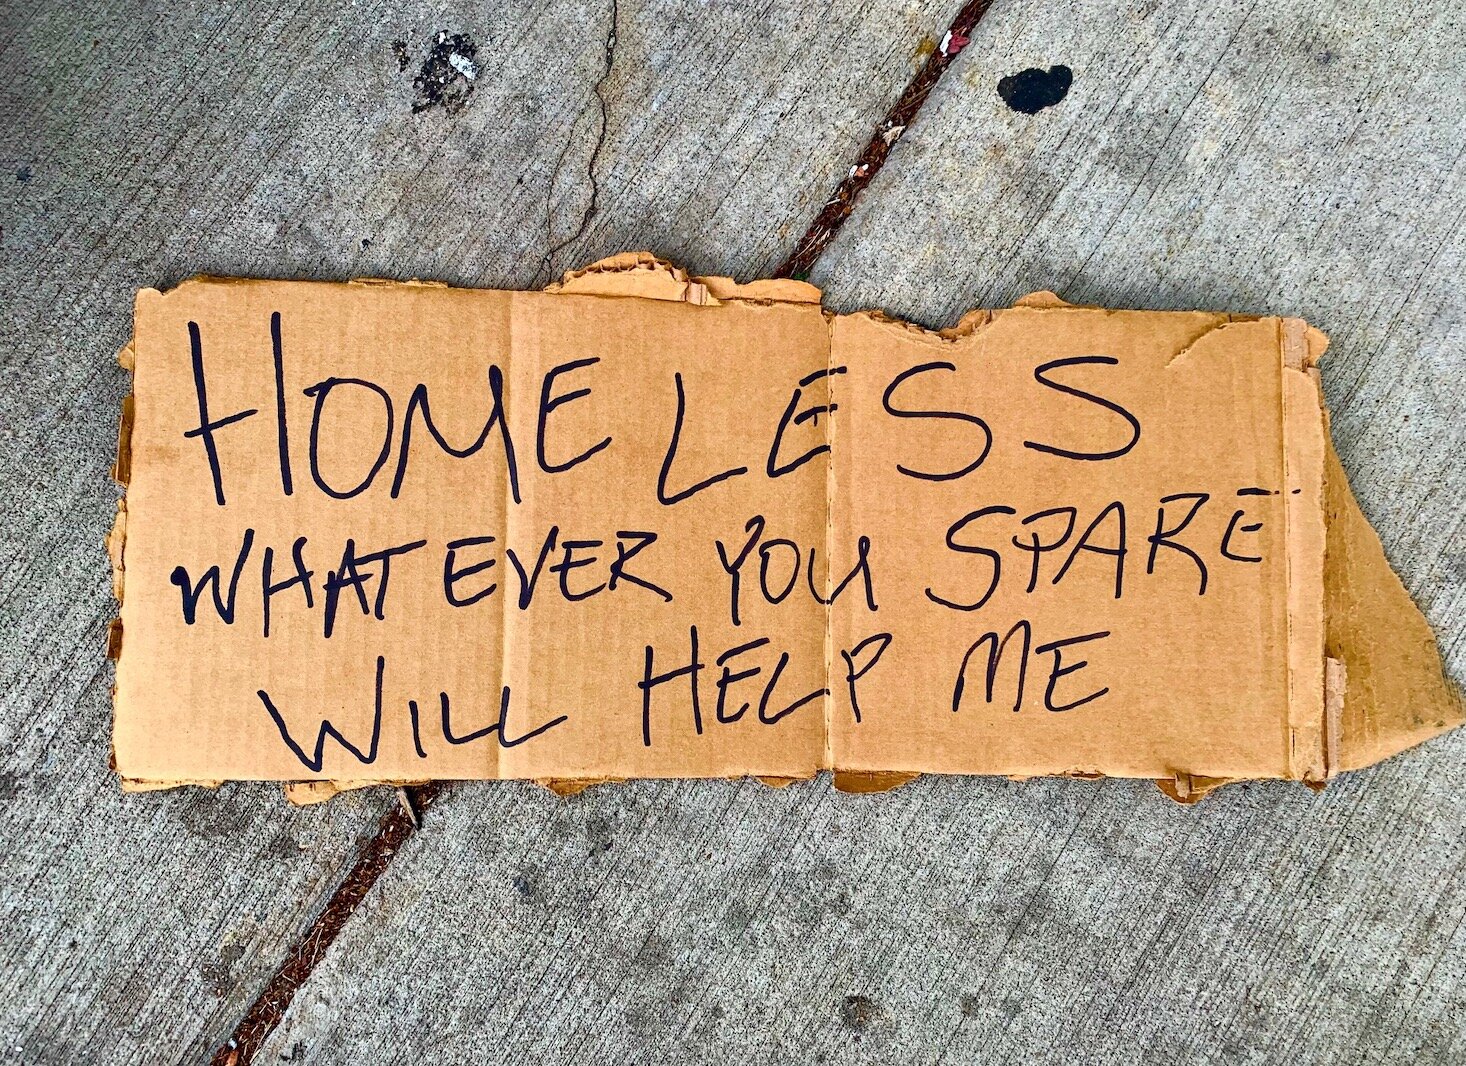 HOMELESS
WHATEVER YOU SPARE
WILL HELP ME